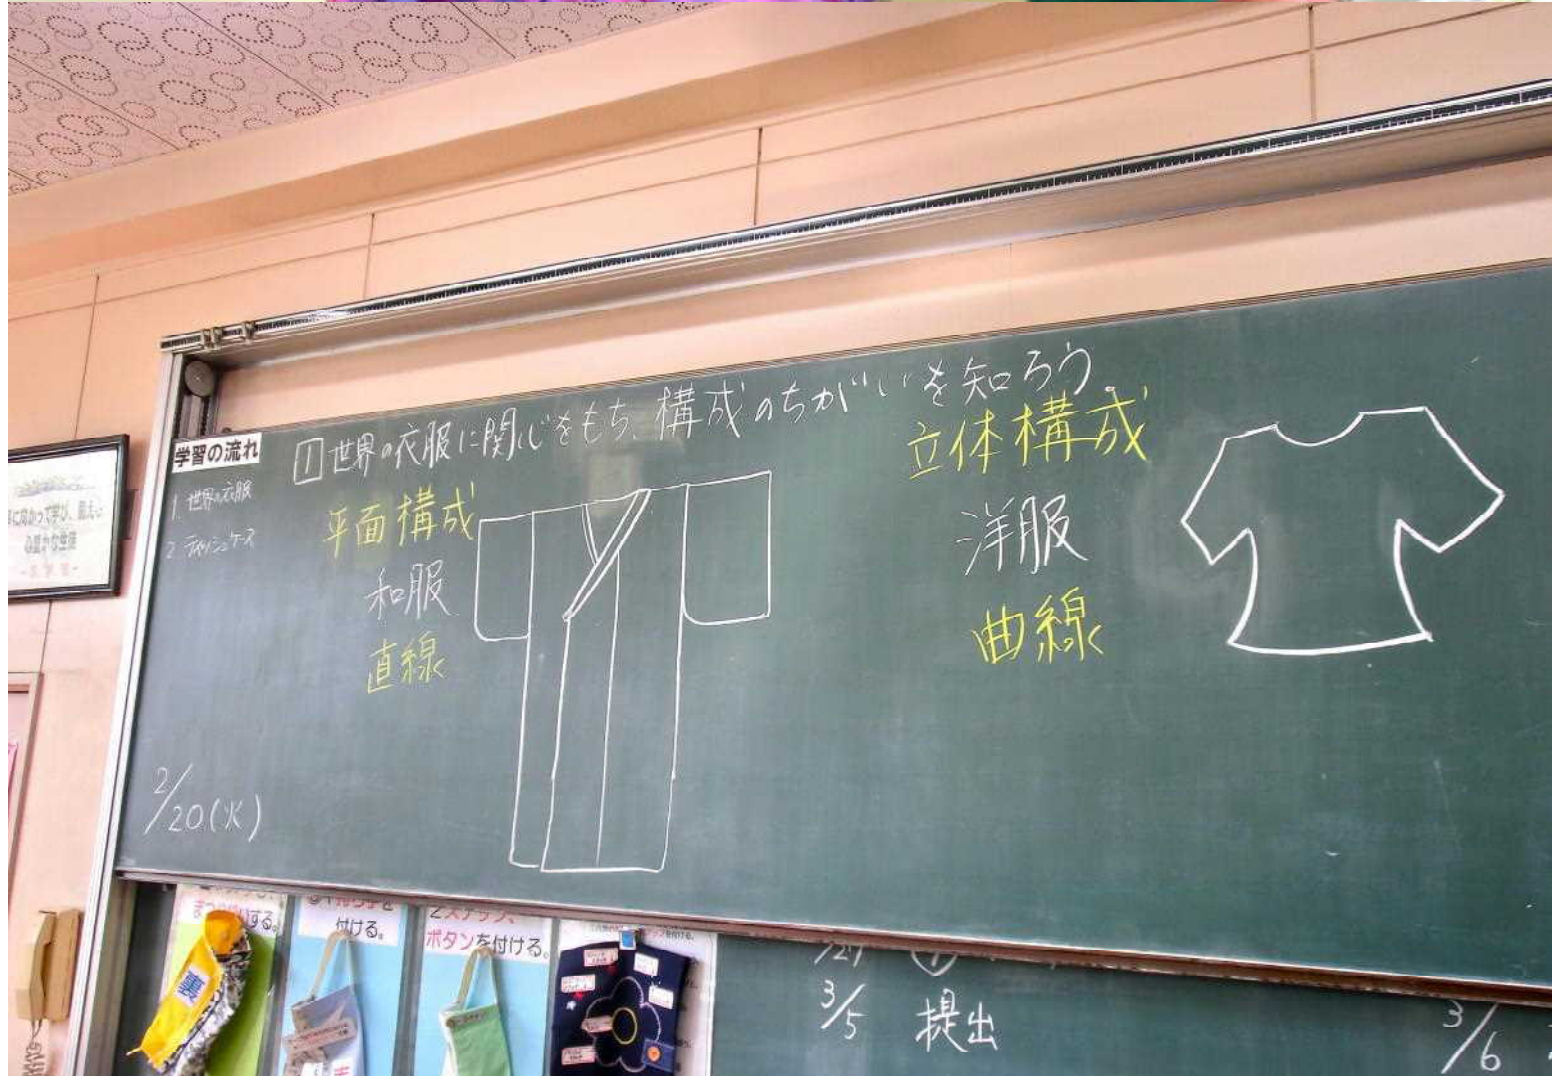 学習の流れ
1 世界の衣服
2 ティッシュケース
1 世界の衣服に関心をもち、構成のちがいを知ろう。
平面構成
和服
直線
立体構成
洋服
曲線
2/20(火)
心豊かな生徒
する。
付ける。
ボタンを付ける。
裏
3/5 提出
3/6